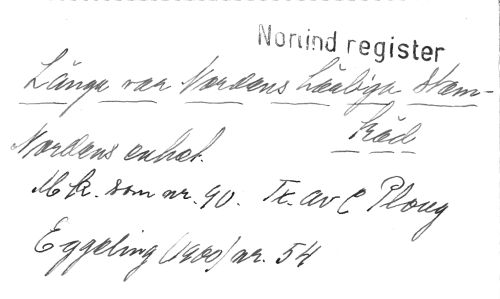 Norlind register
Länge var Nordens härliga Stam-
träd
Nordens enhet.
Mk. som nr. 90. Tx. av C Ploug
Eggeling (1900) nr. 54